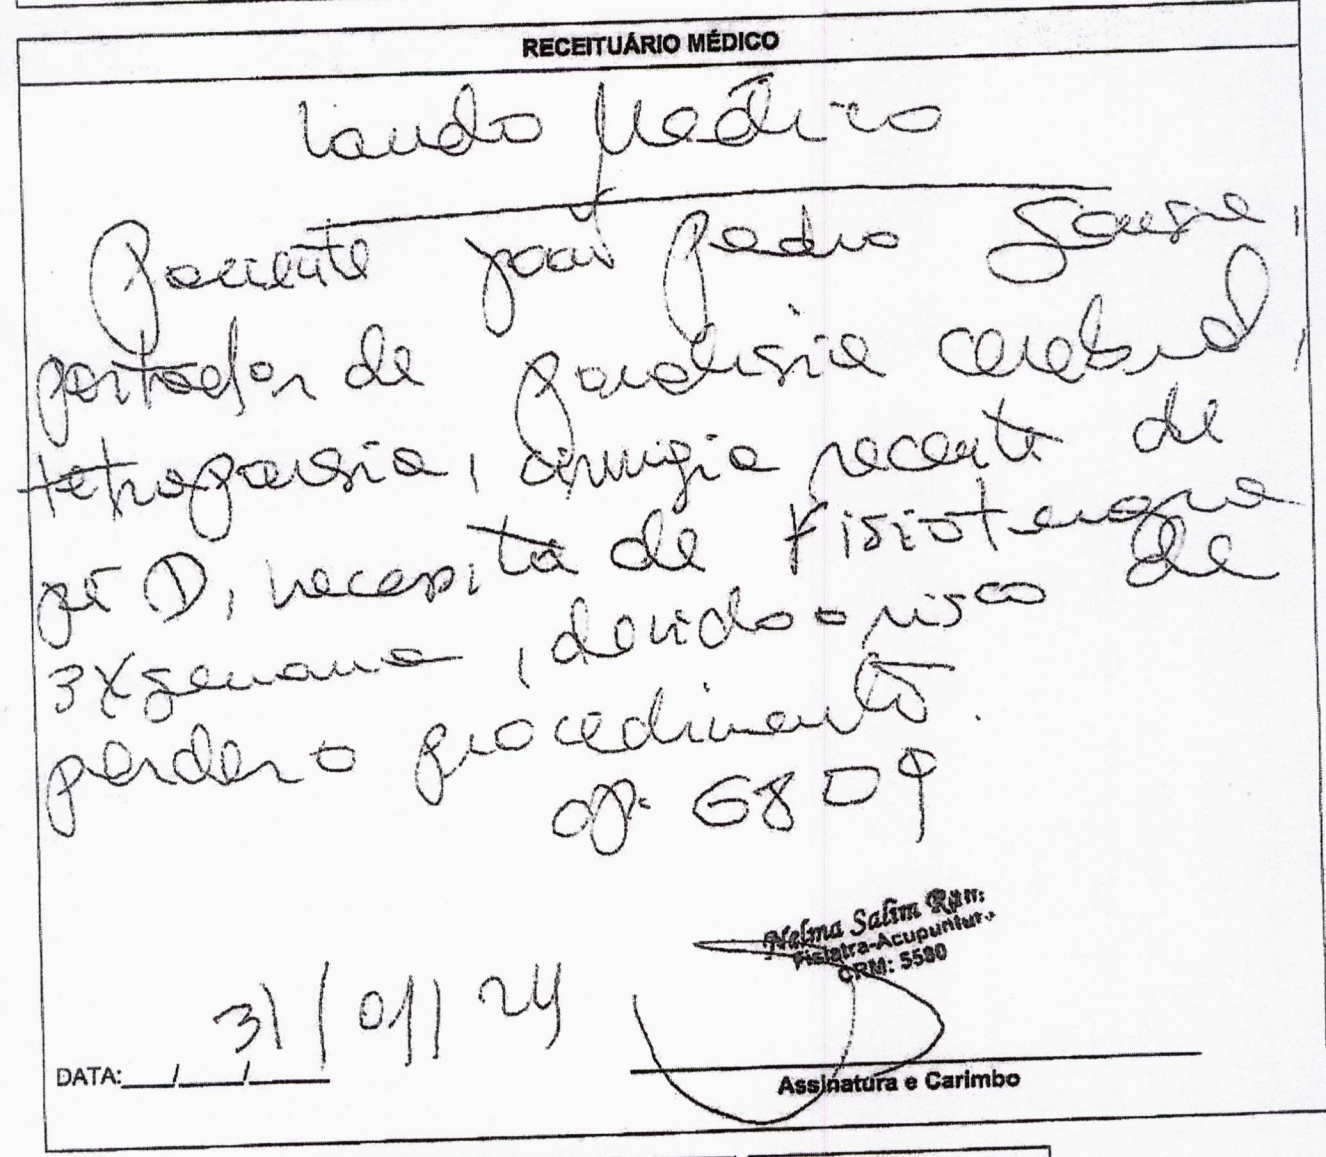 RECEITUÁRIO MÉDICO
Laudo Médico
Paciente João Pedro Sousa,
portador de paralisia cerebral,
tetraparesia, cirurgia recente de
pé D, necessita de Fisioterapia
3X semana, devido o risco de
perder o procedimento.
6809
Nelma Salim
Fisiatra-Acupuntura
CRM: 5580
31/01/24
DATA:___/___/___
Assinatura e Carimbo